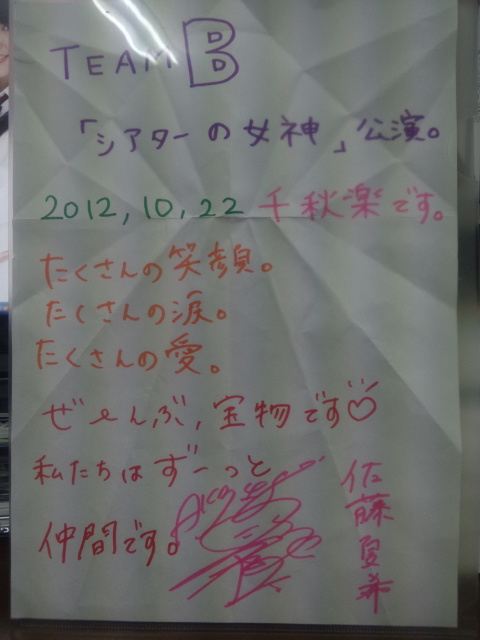 TEAM B
「シアターの女神」公演。
2012,10,22 千秋楽です。
たくさんの笑顔。
たくさんの涙。
たくさんの愛。
ぜーんぶ、宝物です♡
私たちはずーっと
仲間です。
佐藤夏希